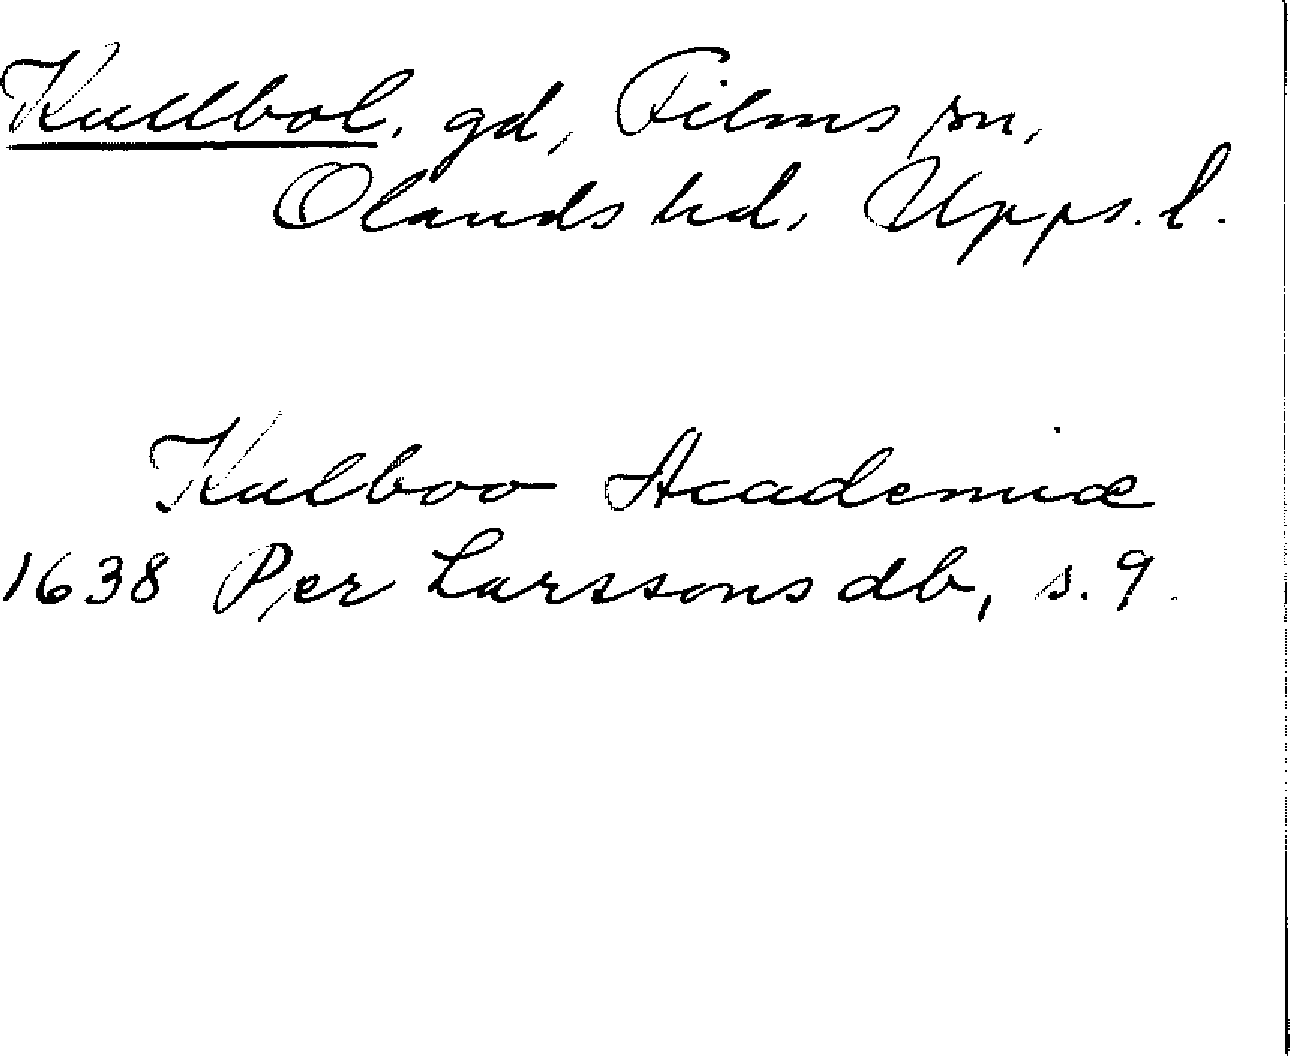 Kullbol, gd, Films sn,
Olands hd, Upps. l.
Kulboo Academiæ
1638 Per Larssons db, s. 9.